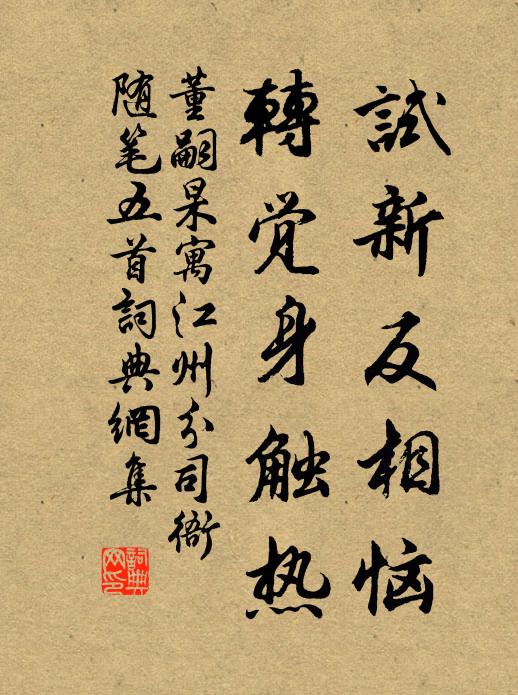 試新反相恼
轉觉身触热
董嗣杲寓江州分司衙
随笔五首詞典網集
詞典网印